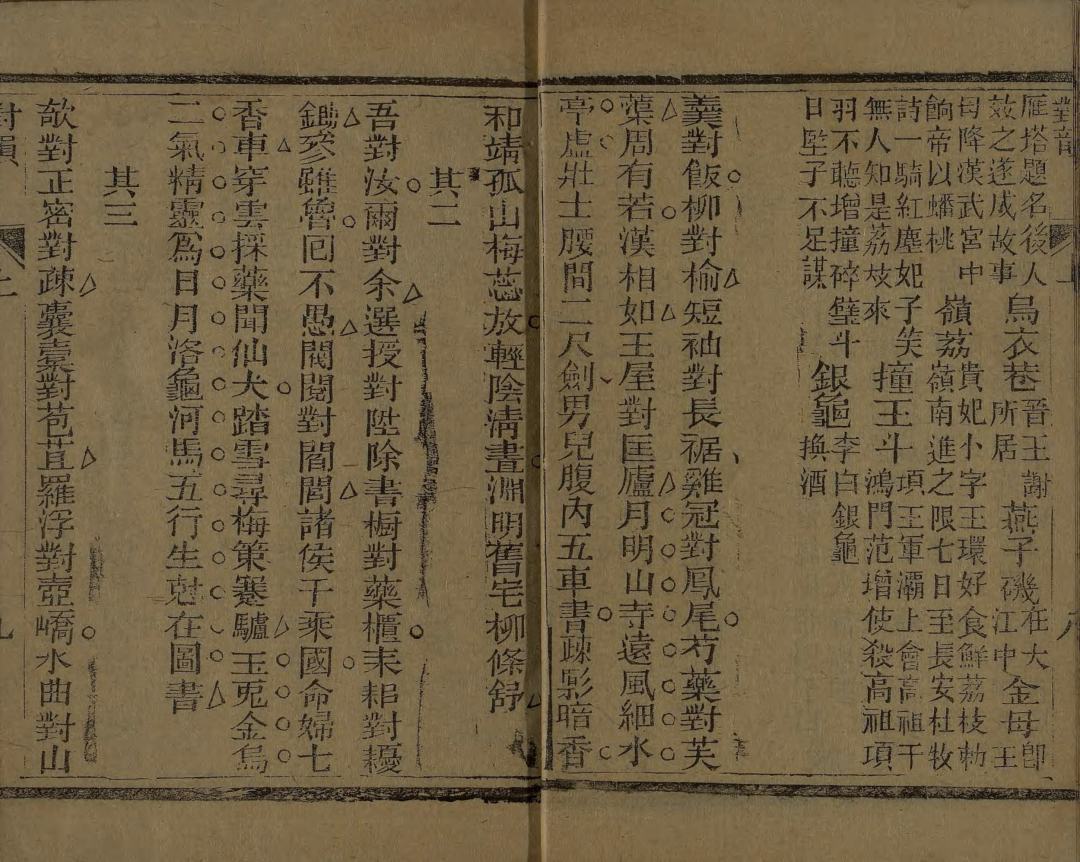 對韻 上 八
鴈塔題名後人
效之遂成故事
烏衣巷
晋王謝
所居
燕子磯
在大
江中
金母
卽
王
母降漢武宮中
餉帝以蟠桃
嶺荔
貴妃小字玉環好食鮮荔枝勅
嶺南進之限七日至長安杜牧
詩一騎紅塵妃子笑
無人知是荔枝來
撞玉斗
項王軍灞上會高祖于
鴻門范增使殺高祖項
羽不聽增撞碎璧斗
曰竪子不足謀
銀龜
李白銀龜
換酒
羮對飯柳對榆短袖對長裾雞冠對鳳尾芍藥對芙
蕖周有若漢相如王屋對匡廬月明山寺遠風細水
亭虛壯士腰間三尺劍男兒腹内五車書疎影暗香
和靖孤山梅蕊放輕陰淸晝淵明舊宅柳條舒
其二
吾對汝爾對余選授對陞除書櫥對藥櫃耒耜對耰
鋤參雖魯囘不愚閥閱對閻閭諸侯千乘國命婦七
香車穿雲採藥聞仙犬踏雪尋梅策蹇驢玉兎金烏
二氣精靈爲日月洛龜河馬五行生尅在圖書
其三
欹對正密對疎囊橐對苞苴羅浮對壺嶠水曲對山
對韻 上 九